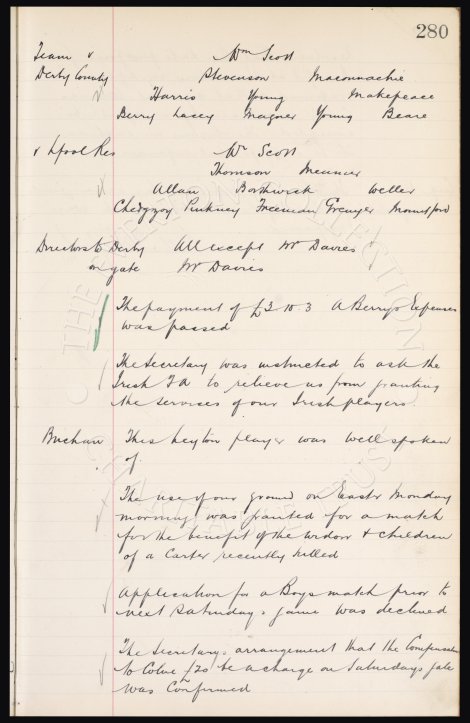 280
Team v Wm Scott
Derby County Stevenson Maconnachie
Harris Young Makepeace
Berry Lacey Magner Young Beare
v Lpool Res Wm Scott
Thomson Meunier
Allan Borthwick Weller
Chedgzoy Pinkney Freeman Grenyer Mountford
Directors to Derby All except Mr Davies
on gate Mr Davies
The payment of £3-10-3 A Berrys Expenses
was passed
The Secretary was instructed to ask the
Irish FA to relieve us from granting
the services of our Irish players.
Buchan This Leyton player was well spoken
of.
The use of our ground on Easter Monday
morning was granted for a match
for the benefit of the widow & children
of a Carter recently killed
Application for a Boys match prior to
next Saturdays game was declined
The Secretarys arrangement that the Compensation
to Colne £20 be a charge on Saturdays gate
was Confirmed